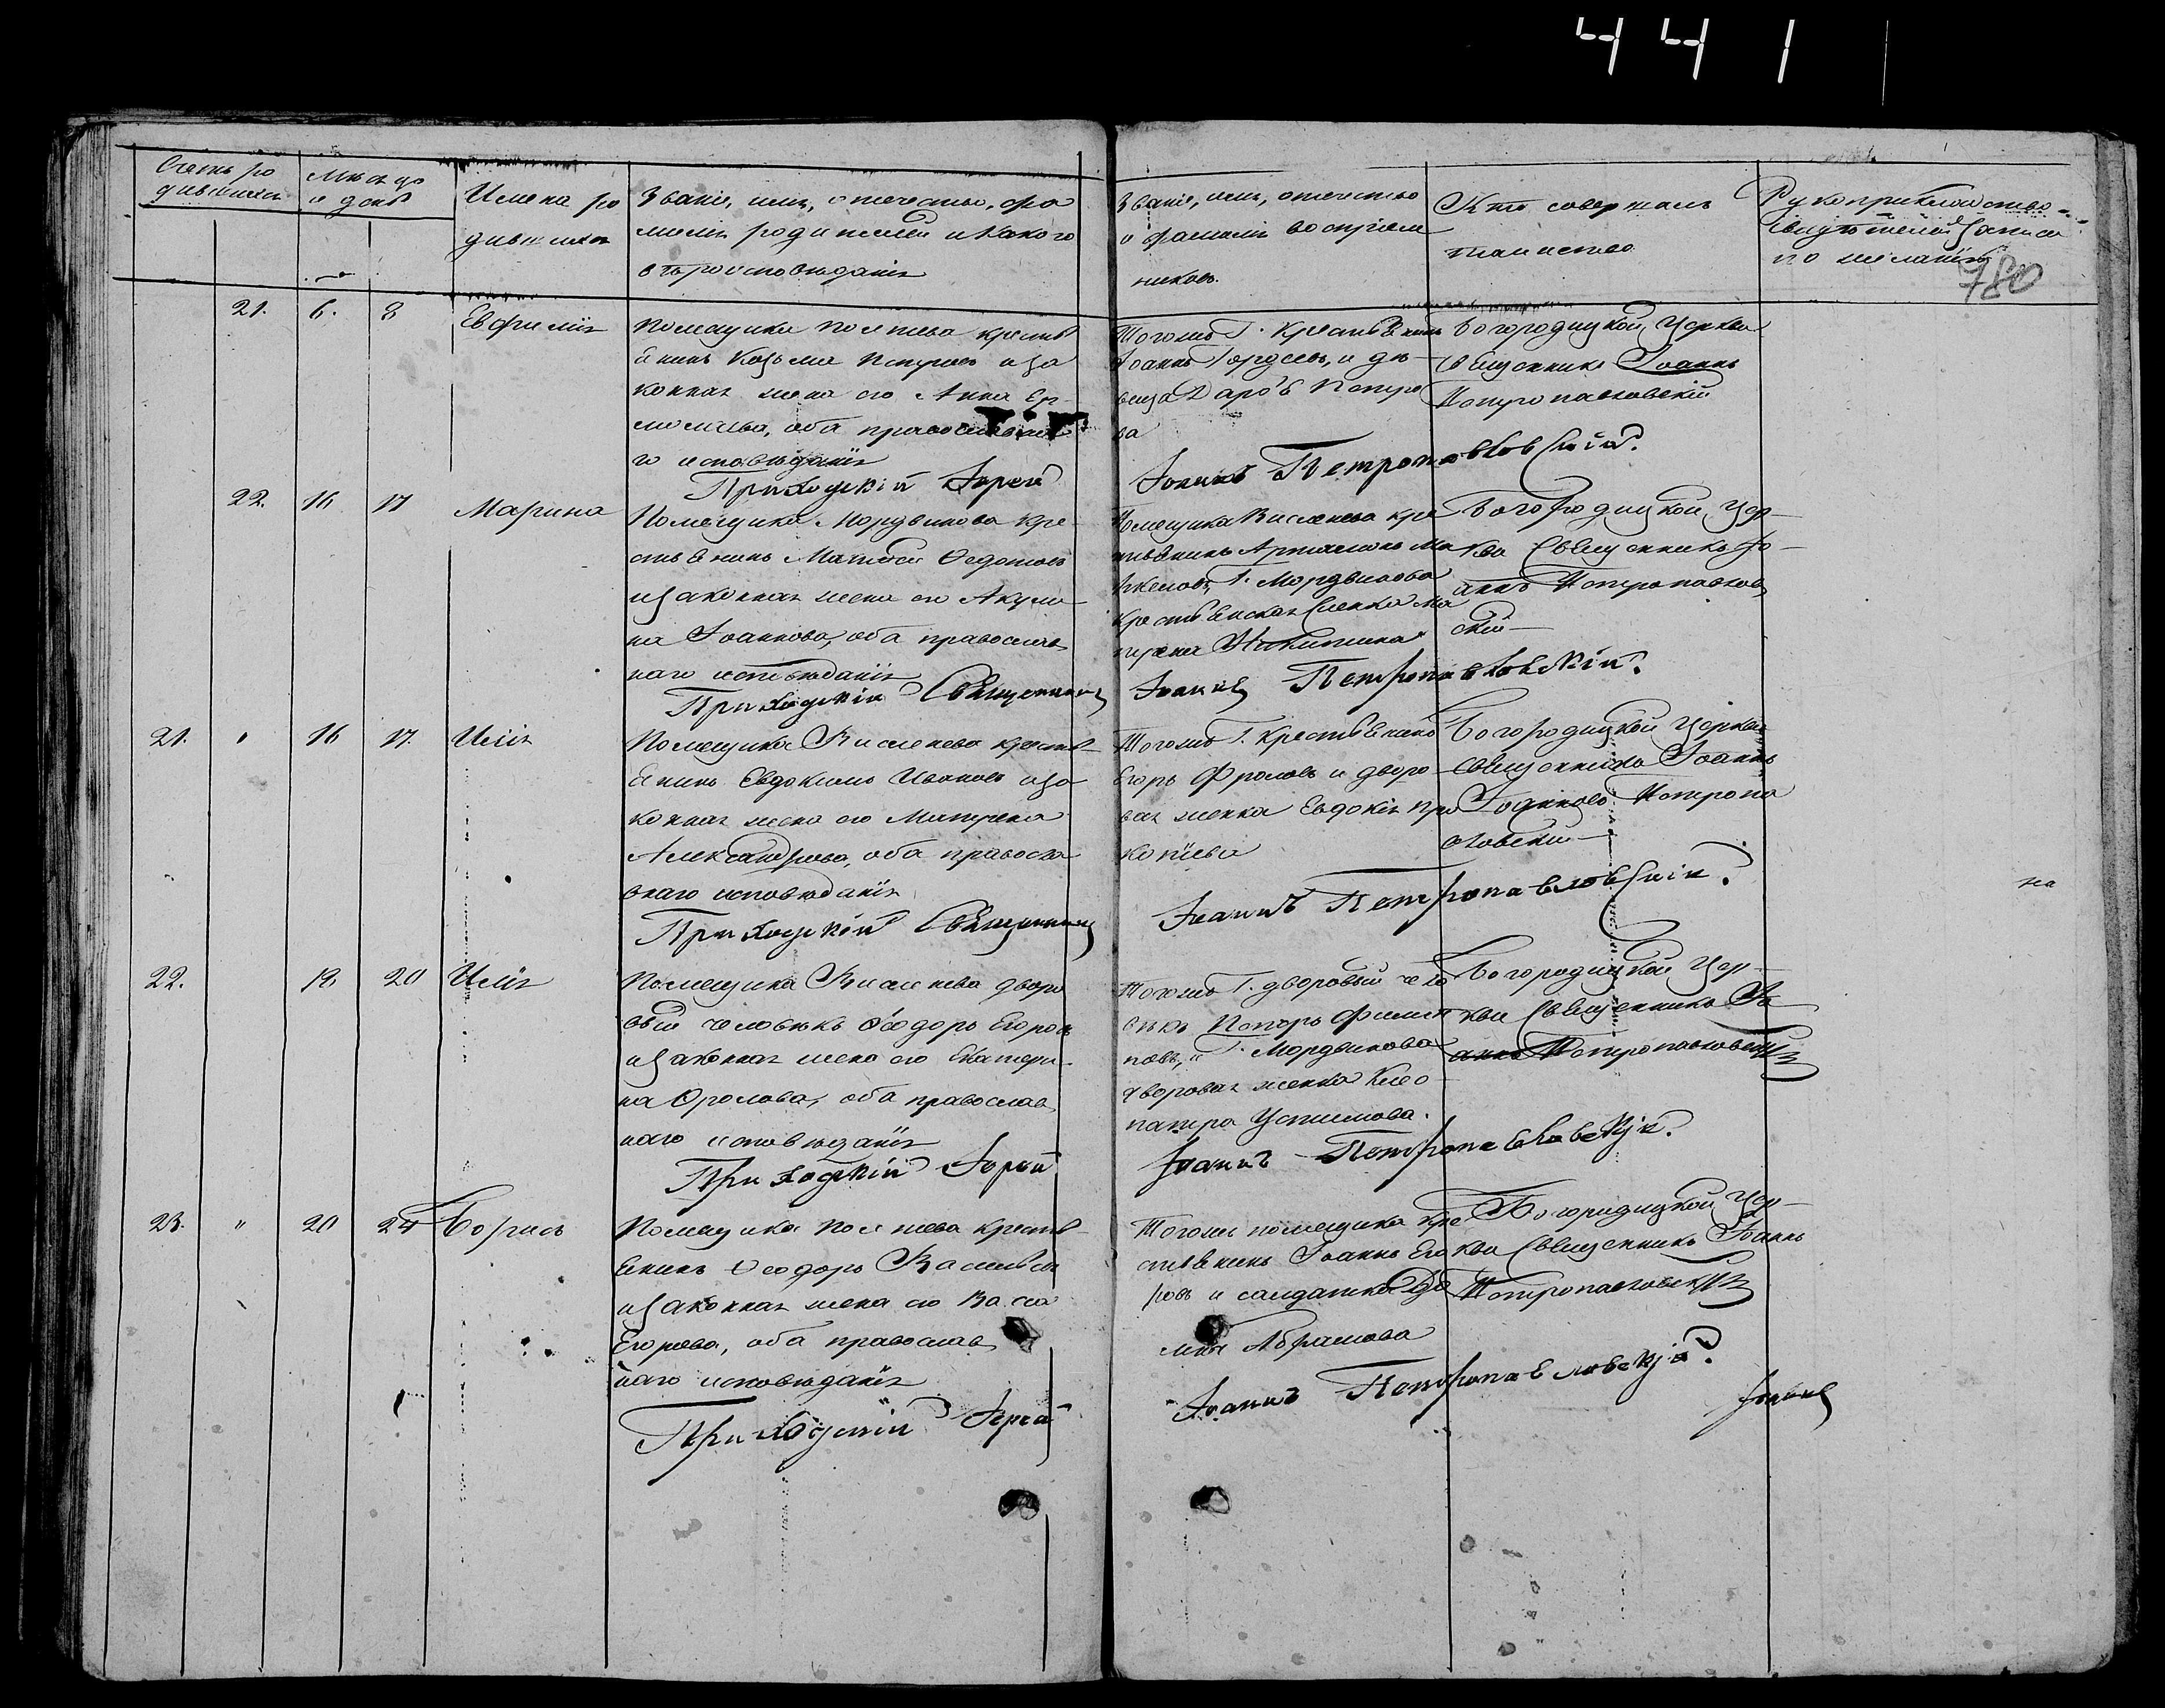 441
Счетъ ро
дившихся
Мѣсяцъ
и день
Имена ро
дившихся
Званіе, имя, отечество, фа
милія родителей и какого
вѣроисповѣданія
Званіе, имя, отечество
и фамилія воспріем
никовъ.
Кто совершалъ
таинство
Рукоприкладство
свидѣтелей записи
по желанію
780
21. 6. 8 Евфимія
Помещика Полтева кресть
янинъ Козьма Петровъ и за
конная жена его Анна Ер
молаева, оба православна
го исповѣданія
Тогожъ Г. крестьянинъ
Іоаннъ Гордеевъ, и дѣ
вица Дарья Петро
ва
Богородицкой Церкви
Священникъ Іоаннъ
Петропавловскій
Приходскій Іерей Іоаннъ Петропавловскій.
22. 16 17 Марина
Помещика Мордвинова кре
стьянинъ Матвей Федотовъ
и законная жена его Акули
на Іоаннова, оба православ
наго исповѣданія
Помещика Висленева кре
стьянинъ Артамонъ Ма
Г. Мордвинова
крестьянская женка Ма
трена Никитина
Богородицкой Цер
кви Священникъ Іо
аннъ Петропавлов
скій
Приходскій Священникъ Іоаннъ Петропавловскій.
21. 16 17. Илія
Помещика Висленева кресть
янинъ Евдокимъ Ивановъ и за
конная жена его Матрена
Александрова, оба правосла
внаго исповѣданія
Тогожъ Г. крестьянинъ
Егоръ Фроловъ и дворо
вая женка Евдокія Про
копіева
Богородицкой Церкви
Священникъ Іоаннъ
Петропа
вловскій
на
Приходскій Священникъ Іоаннъ Петропавловскій.
22. 18 20 Илія
Помещика Висленева дворо
вый человѣкъ Ѳеодоръ Егоровъ
и законная жена его Екатери
на Фролова, оба православ
наго исповѣданія
Тогожъ Г. дворовый чело
вѣкъ Петръ Филип
повъ, и Г. Мордвинова
дворовая женка Клео
патра Устимова.
Богородицкой Цер
кви Священникъ Іо
аннъ Петропавловскій
Приходскій Іерей Іоаннъ Петропавловскій.
23. " 20 24 Борисъ
Помещика Полтева кресть
янинъ Ѳеодоръ Васильевъ
и законная жена его Васса
Егорова, оба православ
наго исповѣданія
Тогожъ помещика кре
стьянинъ Іоаннъ Его
ровъ и салдатка До
мна Абрамова
Богородицкой Цер
кви Священникъ Іоаннъ
Петропавловскій
Приходскій Іерей Іоаннъ Петропавловскій.
Іоаннъ